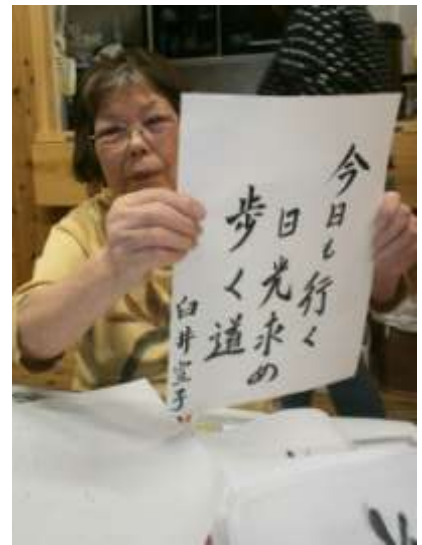 今日も行く
日光求め
歩く道
臼井宝子